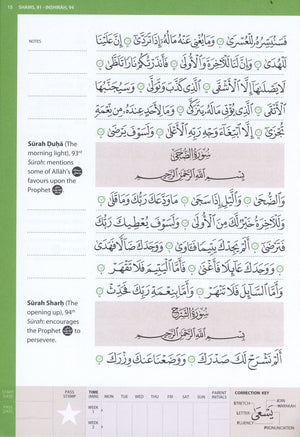 15 SHAMS, 91 - INSHIRĀH, 94
NOTES
فَسَنُيَسِّرُهُۥ لِلْعُسْرَىٰ ۝ وَمَا يُغْنِى عَنْهُ مَالُهُۥٓ إِذَا تَرَدَّىٰٓ ۝ إِنَّ عَلَيْنَا
لَلْهُدَىٰ ۝ وَإِنَّ لَنَا لَلْـَٔاخِرَةَ وَٱلْأُولَىٰ ۝ فَأَنذَرْتُكُمْ نَارًا تَلَظَّىٰ ۝
لَا يَصْلَىٰهَآ إِلَّا ٱلْأَشْقَى ۝ ٱلَّذِى كَذَّبَ وَتَوَلَّىٰ ۝ وَسَيُجَنَّبُهَا
ٱلْأَتْقَى ۝ ٱلَّذِى يُؤْتِى مَالَهُۥ يَتَزَكَّىٰ ۝ وَمَا لِأَحَدٍ عِندَهُۥ مِن نِّعْمَةٍ
تُجْزَىٰٓ ۝ إِلَّا ٱبْتِغَآءَ وَجْهِ رَبِّهِ ٱلْأَعْلَىٰ ۝ وَلَسَوْفَ يَرْضَىٰ ۝
Sūrah Duḥā (The
morning light), 93rd
Sūrah: mentions
some of Allāh's
favours upon the
Prophet
سُورَةُ الضُّحَىٰ
بِسْمِ ٱللَّهِ ٱلرَّحْمَٰنِ ٱلرَّحِيمِ
وَٱلضُّحَىٰ ۝ وَٱلَّيْلِ إِذَا سَجَىٰ ۝ مَا وَدَّعَكَ رَبُّكَ وَمَا قَلَىٰ ۝
وَلَلْـَٔاخِرَةُ خَيْرٌ لَّكَ مِنَ ٱلْأُولَىٰ ۝ وَلَسَوْفَ يُعْطِيكَ رَبُّكَ
فَتَرْضَىٰٓ ۝ أَلَمْ يَجِدْكَ يَتِيمًا فَـَٔاوَىٰ ۝ وَوَجَدَكَ ضَآلًّا فَهَدَىٰ
۝ وَوَجَدَكَ عَآئِلًا فَأَغْنَىٰ ۝ فَأَمَّا ٱلْيَتِيمَ فَلَا تَقْهَرْ
۝ وَأَمَّا ٱلسَّآئِلَ فَلَا تَنْهَرْ ۝ وَأَمَّا بِنِعْمَةِ رَبِّكَ فَحَدِّثْ ۝
Sūrah Sharḥ (The
opening up), 94th
Sūrah: encourages
the Prophet to
persevere.
سُورَةُ الشَّرْحِ
بِسْمِ ٱللَّهِ ٱلرَّحْمَٰنِ ٱلرَّحِيمِ
أَلَمْ نَشْرَحْ لَكَ صَدْرَكَ ۝ وَوَضَعْنَا عَنكَ وِزْرَكَ ۝
START DATE
PASS DATE
PASS STAMP
TIME (MIN) MON TUE WED THU FRI SAT SUN PARENT INITIALS
WEEK 1
WEEK 2
CORRECTION KEY
STRETCH
JOIN
HARAKAH
LETTER
FLUENCY
PRONUNCIATION